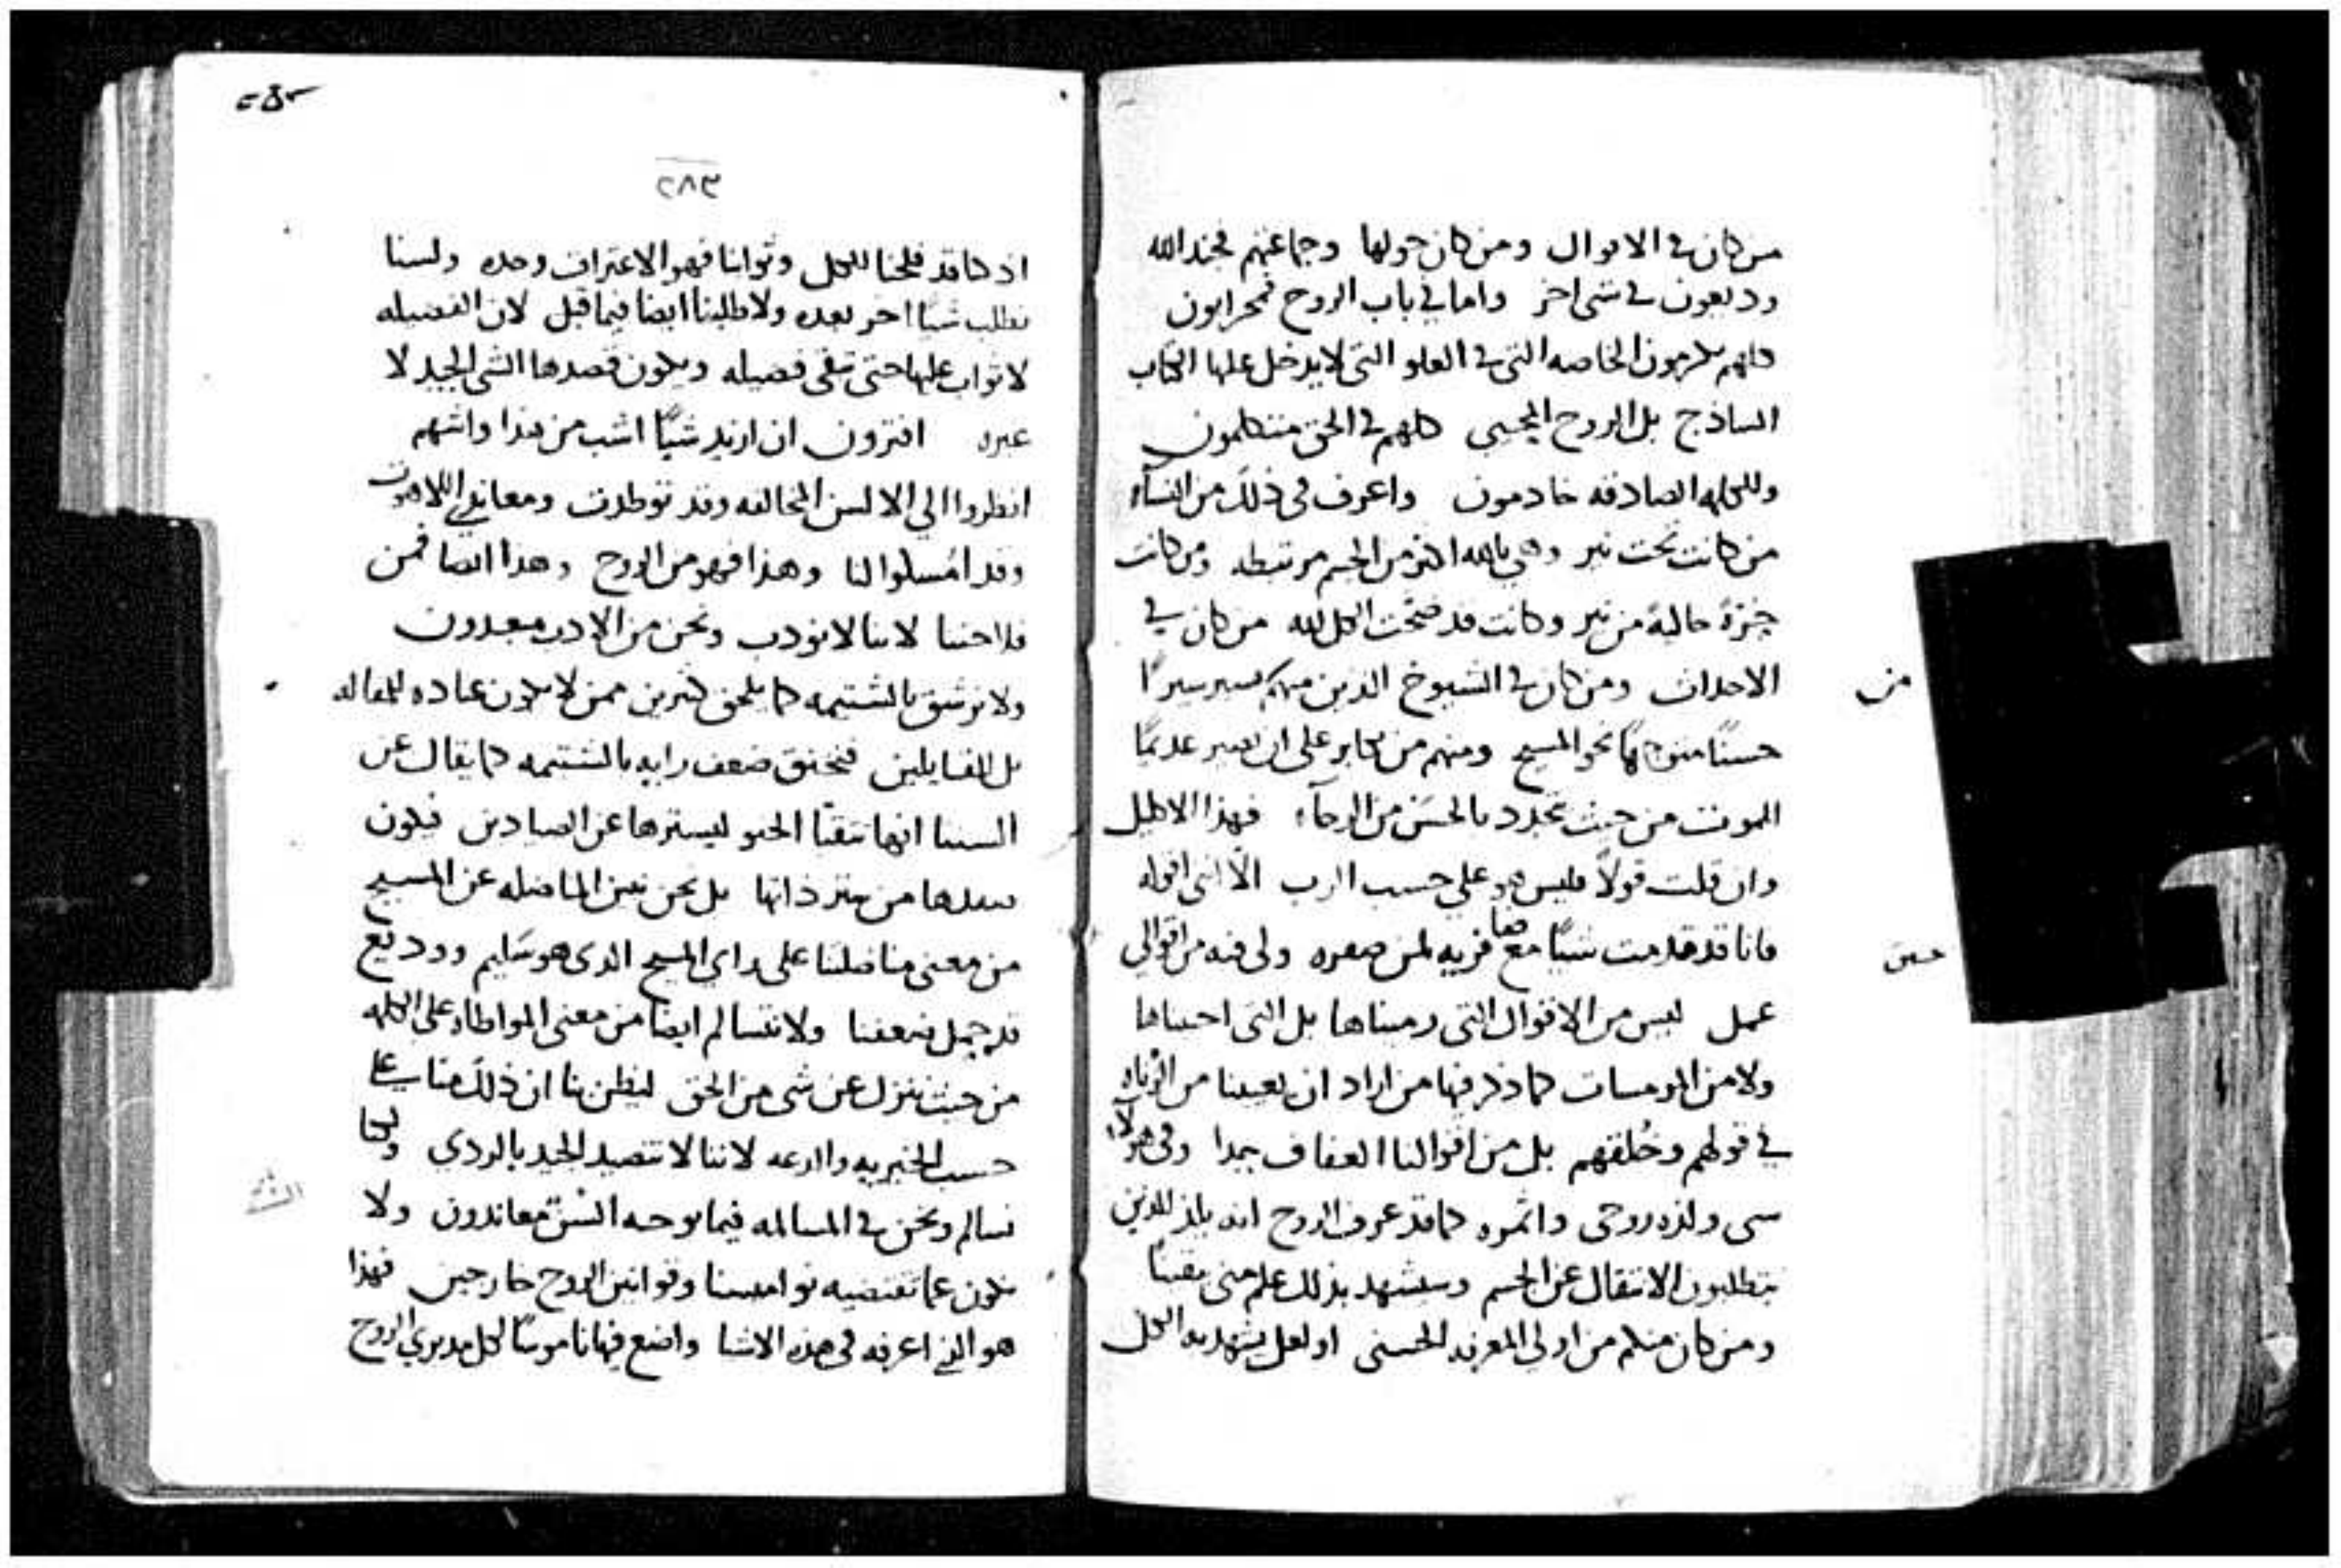 من كان في الاموال ومن كان حولها وجماعتهم فجند الله
ودبعون في شي اخر واما في باب الروح فمحرابون
كلهم يكرمون الخاصه التي في العلو التي لا يدخل عليها الكتاب
الساذج بل الروح المحيي كلهم في الحق متكلمون
وللكلمه الصادقه خادمون واعرف في ذلك من النساء
من كانت تحت نير وهي بالله اكثر من الجسم مرتبطه ومن كانت
حرة خالية من نير وكانت قد ضحت الكل لله من كان في
الاحداث ومن كان في الشيوخ الذين منهم يسير سيرًا
حسنًا نحو المسيح ومنهم من يكابر على ان يصير عديمًا
الموت من حيث تجدد بالحسن من الرجآء فهذا الاكليل
وان قلت قولًا فليس هو على حسب الرب الا انني اقوله
فانا قد قدمت شيئًا مع قريه لمن ولي فيه من اقوالي
عمل ليس من الاقوال التي رميناها بل التي احببناها
ولا من المومسات كما ذكر فيها من اراد ان يعيبنا من الزناه
في قولهم وخلقهم بل من اقوالنا العفاف جدا وفي هولاء
سى ولذه روحي واثمره كما قد عرف الروح انه يلذ للذين
يتطلبون الانتقال عن الجسم وسيشهد بذلك علم مني يقينًا
ومن كان منكم من اولي المعرفه الحسنى او لعل يشهد به الكل
من
حين
٢٨٣
اذ كنا قد فلحنا للكل وثوابنا فهو الاعتراف وحده ولسنا
نطلب شيا اخر بعده ولا طلبنا ايضا فيما قبل لان الفضيله
لا ثواب عليها حتى تبقى فضيله ويكون قصدها الشي الجيد لا
غيره افترون ان ازيد شيًا اشب من هذا واشهم
انظروا الي الالسن المخالفه وقد توطدت ومعاندي اللاهوت
وقد امسكوا لنا وهذا فهو من الروح وهذا ايضا فمن
فلاحتنا لاننا لا نودب ونحن من الادب معدون
ولا نرشق بالشتيمه كما يلحق كثيرين ممن لا يكون عناده للمقاله
بل للقايلين فيخنق ضعف رايه بالشتيمه كما يقال عن
السبيا انها تتقيا الحبر ليسترها عن الصيادين فيكون
من بل نحن نبين المناضله عن المسيح
من معنى مناضلتنا على راي المسيح الذى هو سَليم ووديع
قد حمل ضعفنا ولا نتسالم ايضا من معنى المواطاه على الكلمه
من حيث ننزل عن شى من الحق ليظن بنا ان ذلك منا على
حسب الخيريه والدعه لاننا لا نتصيد الجيد بالردى ولكنا
نسالم ونحن في المسالمه فيما يوجبه السن معاندون ولا
نكون عما تقتضيه نواميسنا وقوانين الروح خارجين فهذا
هو الذي اعرفه في هذه الاشيا واضع فيها ناموسًا لكل مدبري الروح